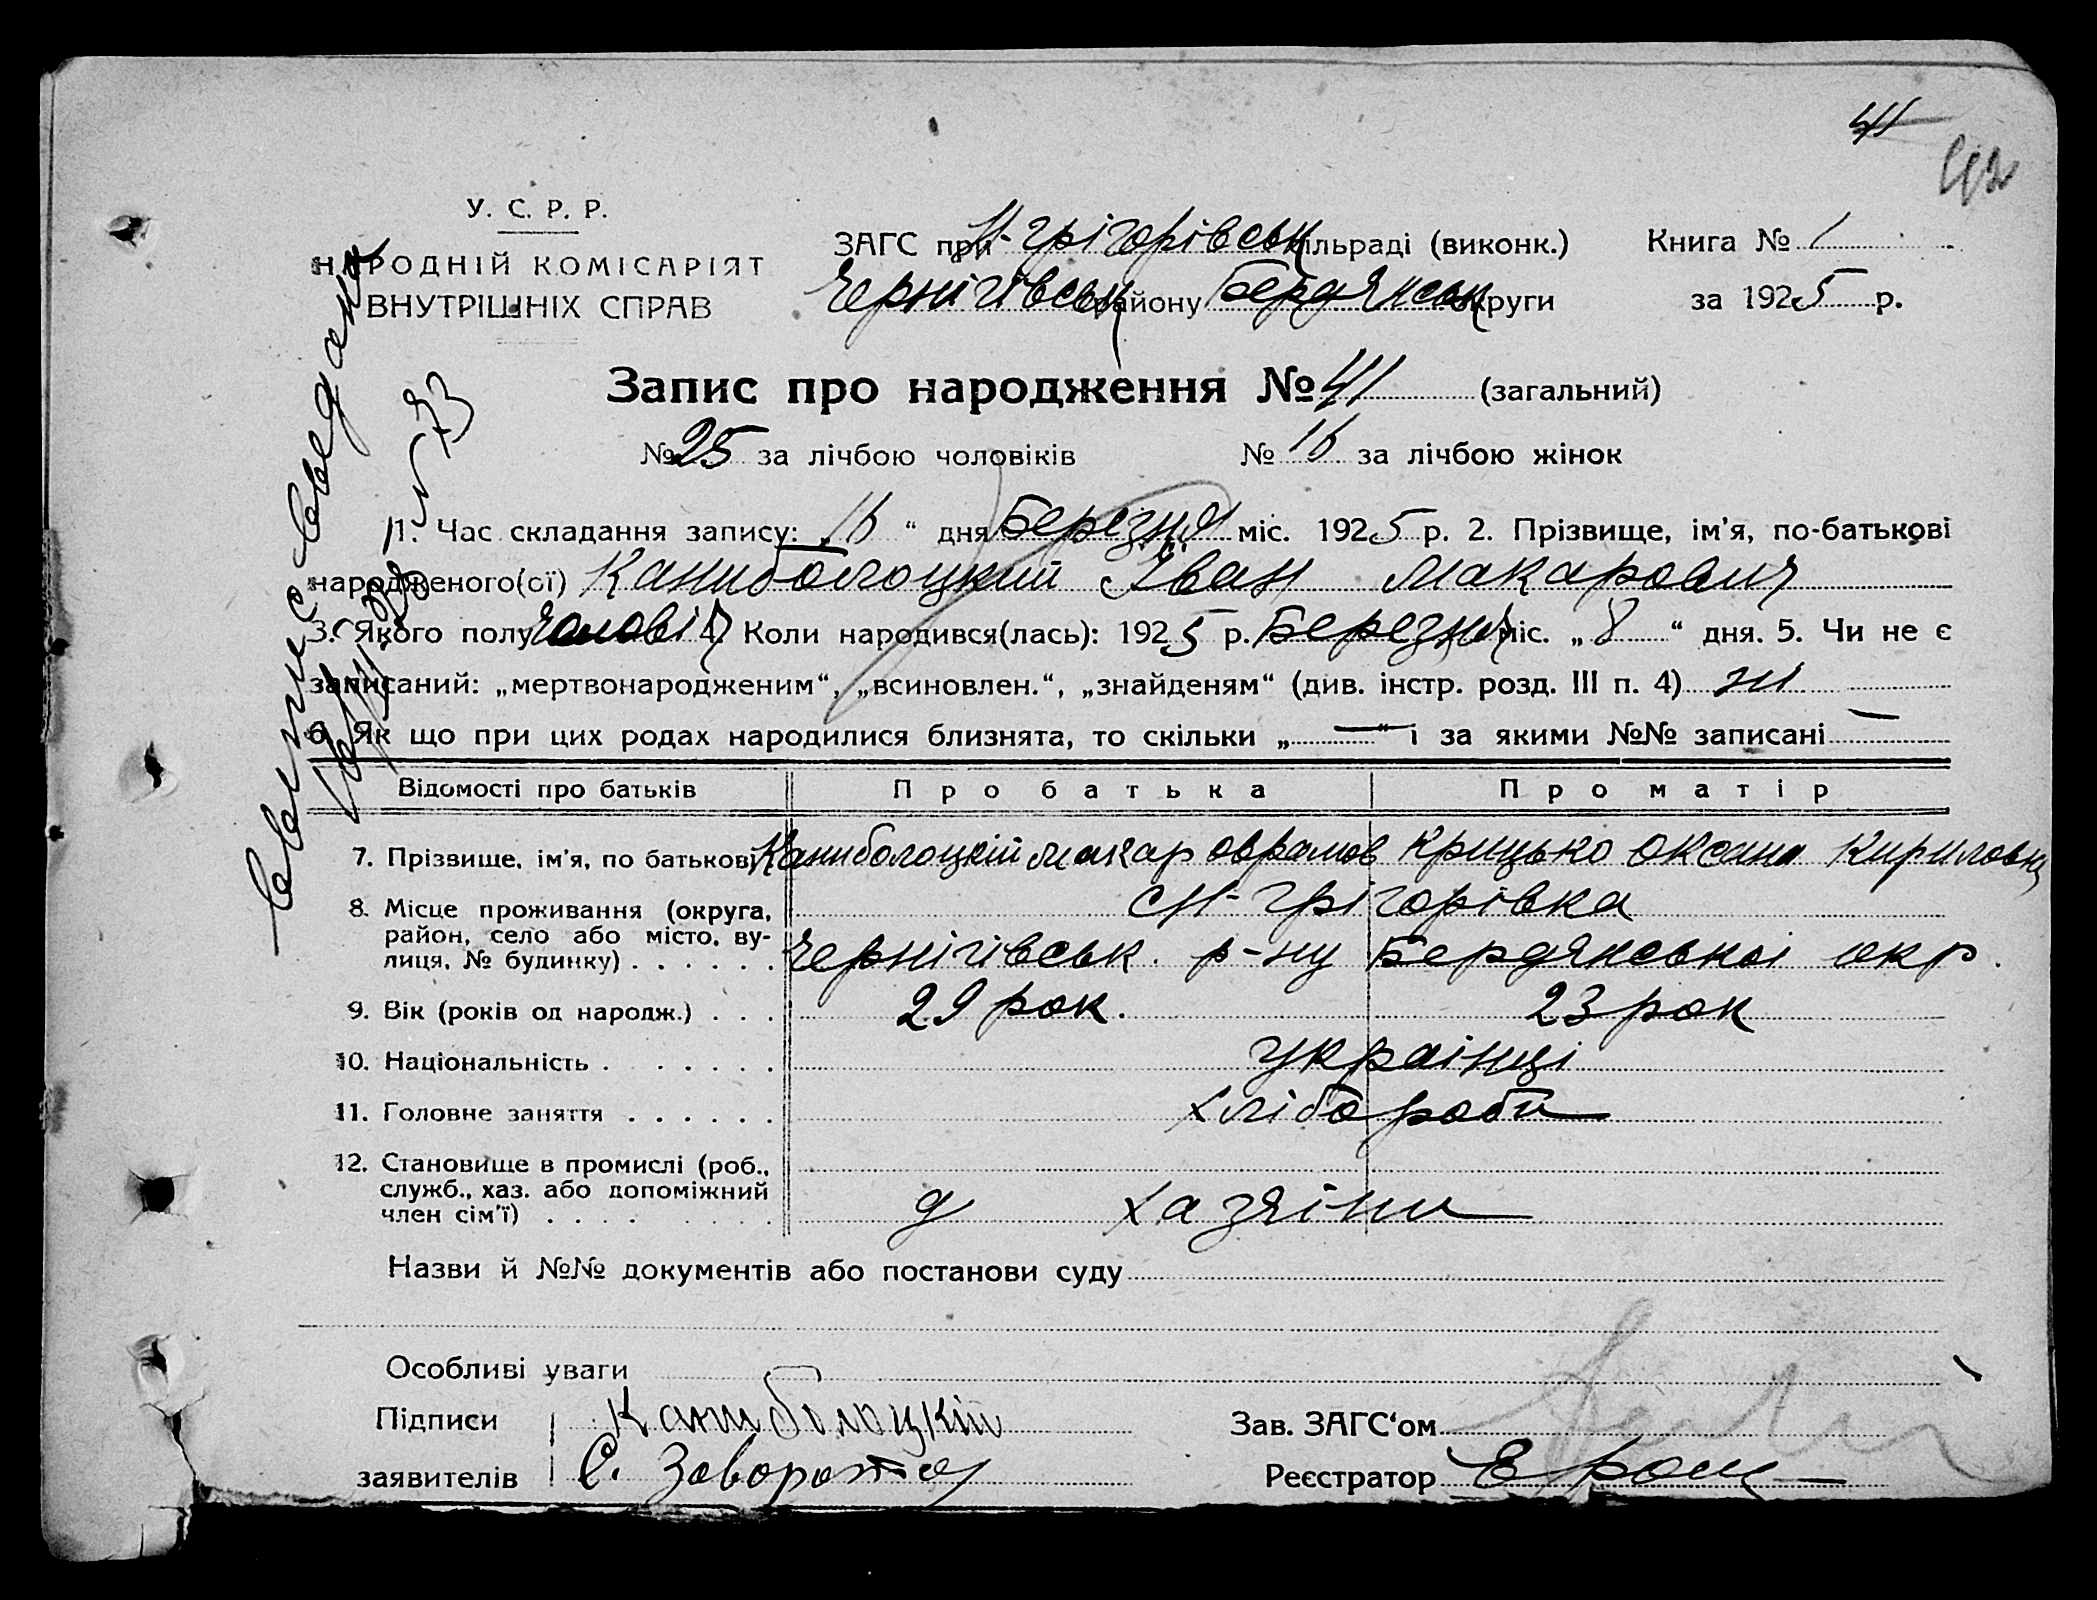 41
42
У. С. Р. Р.
НАРОДНІЙ КОМІСАРІЯТ
ВНУТРІШНІХ СПРАВ
ЗАГС при Н-Грігорівськ сільраді (виконк.)
Чернігівськ району Бердянськ округи
Книга № 1
за 1925 р.
Запис про народження № 41 (загальний)
№ 25 за лічбою чоловіків № 16 за лічбою жінок
1. Час складання запису: „16“ дня Березня міс. 1925 р. 2. Прізвище, ім'я, по-батькові
народженого(ої) Каниболоцкий Іван Макарович
3. Якого полу чоловіч 4. Коли народився(лась): 1925 р. Березня міс. „8“ дня. 5. Чи не є
записаний: „мертвонародженим“, „всиновлен.“, „знайденям“ (див. інстр. розд. III п. 4) ні
6. Як що при цих родах народилися близнята, то скільки „—“ і за якими №№ записані —
Відомості про батьків Про батька Про матір
7. Прізвище, ім'я, по батькові Каниболоцкій Макар Оврамов Крицько Оксана Кириловна
8. Місце проживання (округа, с Н-Грігорівка
район, село або місто, ву-
лиця, № будинку) . . . . . . Чернігівськ. р-ну Бердянської окр.
9. Вік (років од народж.) . . . 29 рок. 23 рок
10. Національність . . . . . . . українці
11. Головне заняття . . . . . . хлібороби
12. Становище в промислі (роб.,
служб., хаз. або допоміжний
член сім'ї) . . . . хазяіни
Назви й №№ документів або постанови суду
Особливі уваги
Підписи Каниболоцкій
заявителів С. Заворотов
Зав. ЗАГС'ом
Реєстратор Ерош